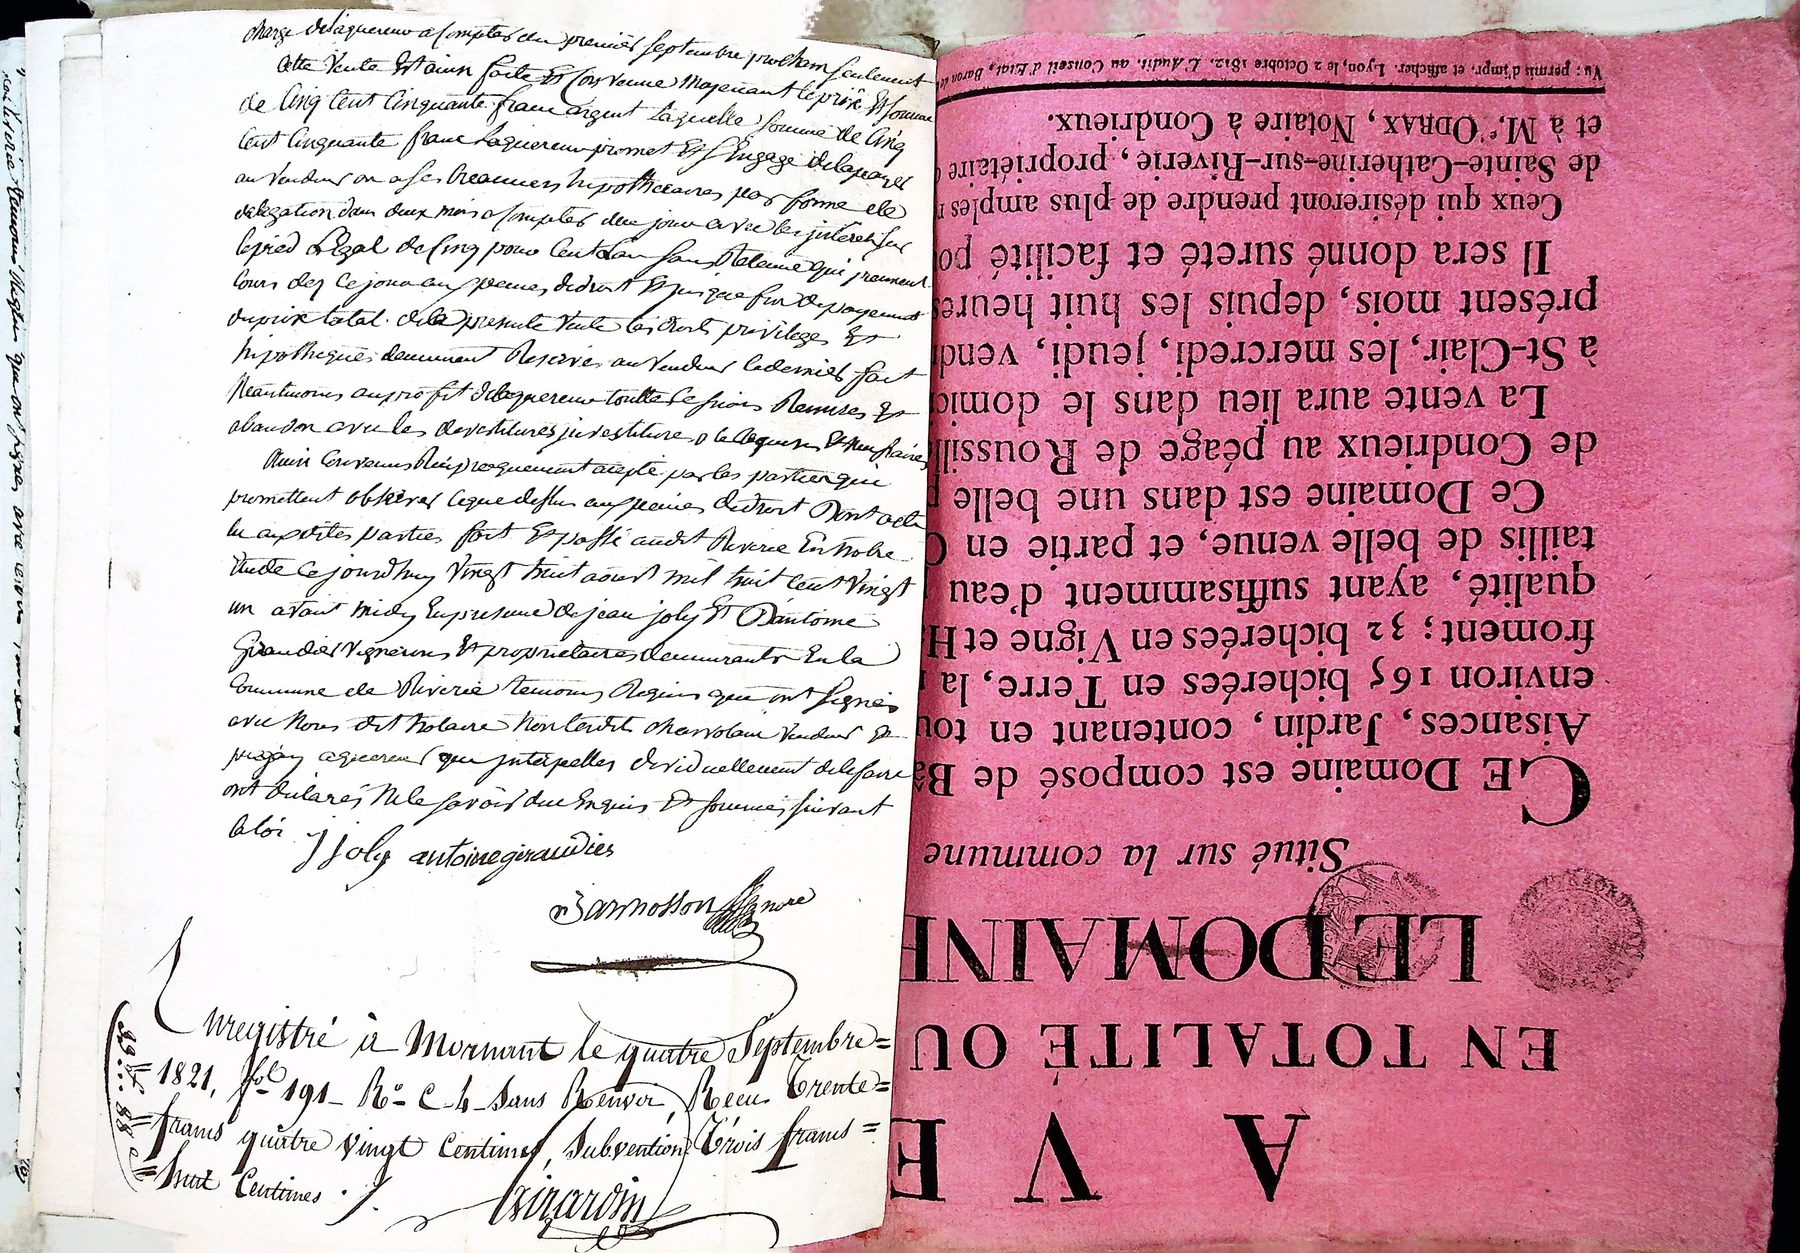 charge delaquereur a compter du premier septembre prochain seulement
Cette Vente Est ainsi faite Et Convenue moyenant le prix Et somme
de Cinq Cent Cinquante franc argent Laquelle somme de Cinq
Cent Cinquante franc Laquereur promet Et S'Engage de la payer
au Vendeur ou a ses Creanciers hipothecaires par forme de
delegation dans deux mois a Compter de ce jour avec les jnterets sur
le pied Legal de Cinq pour Cent Lan sans Retenue qui prennent
Cours des Ce jour aux peines de droit Et jusque fin de payement
du prix total de la presente Vente les droits privileges Et
hipotheques demeurent Reservés au Vendeur Ce dernier fait
Neantmoins au profit delaquereur toutte Cessions Remises Et
abandon avec les devestitures jnvestitures a Ce Requises Et necessaires
Ainsi Convenu Reciproquement accepté par les parties qui
promettent observer Ce que dessus aux peines de droit Dont acte
lu aux dites parties fait Et passé audit Riverie En notre
Etude Ce jourdhuy Vingt huit aoust mil huit Cent Vingt
un avant midy En presence de jean joly Et D'antoine
Giraudier Vignerons Et proprietaires demeurants En la
Commune de Riverie temoins Requis qui ont signés
avec Nous dit Notaire Non lesdits Charvolain Vendeur Et
aquereur que jnterpellés deviduellement de le faire
ont declarés Ne le savoir de ce Enquis Et sommés suivant
la loi
j joly antoine giraudier
Enregistré à Mornant le quatre Septembre=
1821, fol. 191 - Ro. C. 4 - Sans Renvoi, Recu Trente=
francs quatre vingt Centimes, Subvention Trois francs=
huit Centimes ./.
Girardin
Vu : permis d'impr. et afficher. Lyon, le 2 Octobre 1812. L'Audit. au Conseil d'Etat, Baron
et à M.e ODRAX, Notaire à Condrieux.
de Sainte-Catherine-sur-Riverie, propriétaire
Ceux qui désireront prendre de plus amples
Il sera donné sureté et facilité
présent mois, depuis les huit heures
à St-Clair, les mercredi, jeudi, vend
La vente aura lieu dans le domi
de Condrieux au péage de Roussill
Ce Domaine est dans une belle
taillis de belle venue, et partie en
qualité, ayant suffisamment d'eau
froment ; 32 bicherées en Vigne et
environ 165 bicherées en Terre, la
Aisances, Jardin, contenant en tou
CE Domaine est composé de Bâ
Situé sur la commune
LE DOMAINE
EN TOTALITÉ OU
A VE